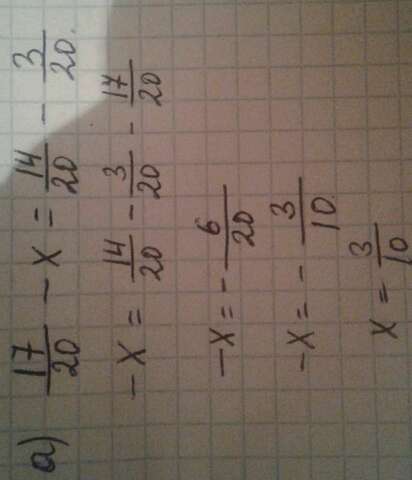 а) 17/20 - x = 14/20 - 3/20.
-x = 14/20 - 3/20 - 17/20
-x = - 6/20
-x = - 3/10
x = 3/10